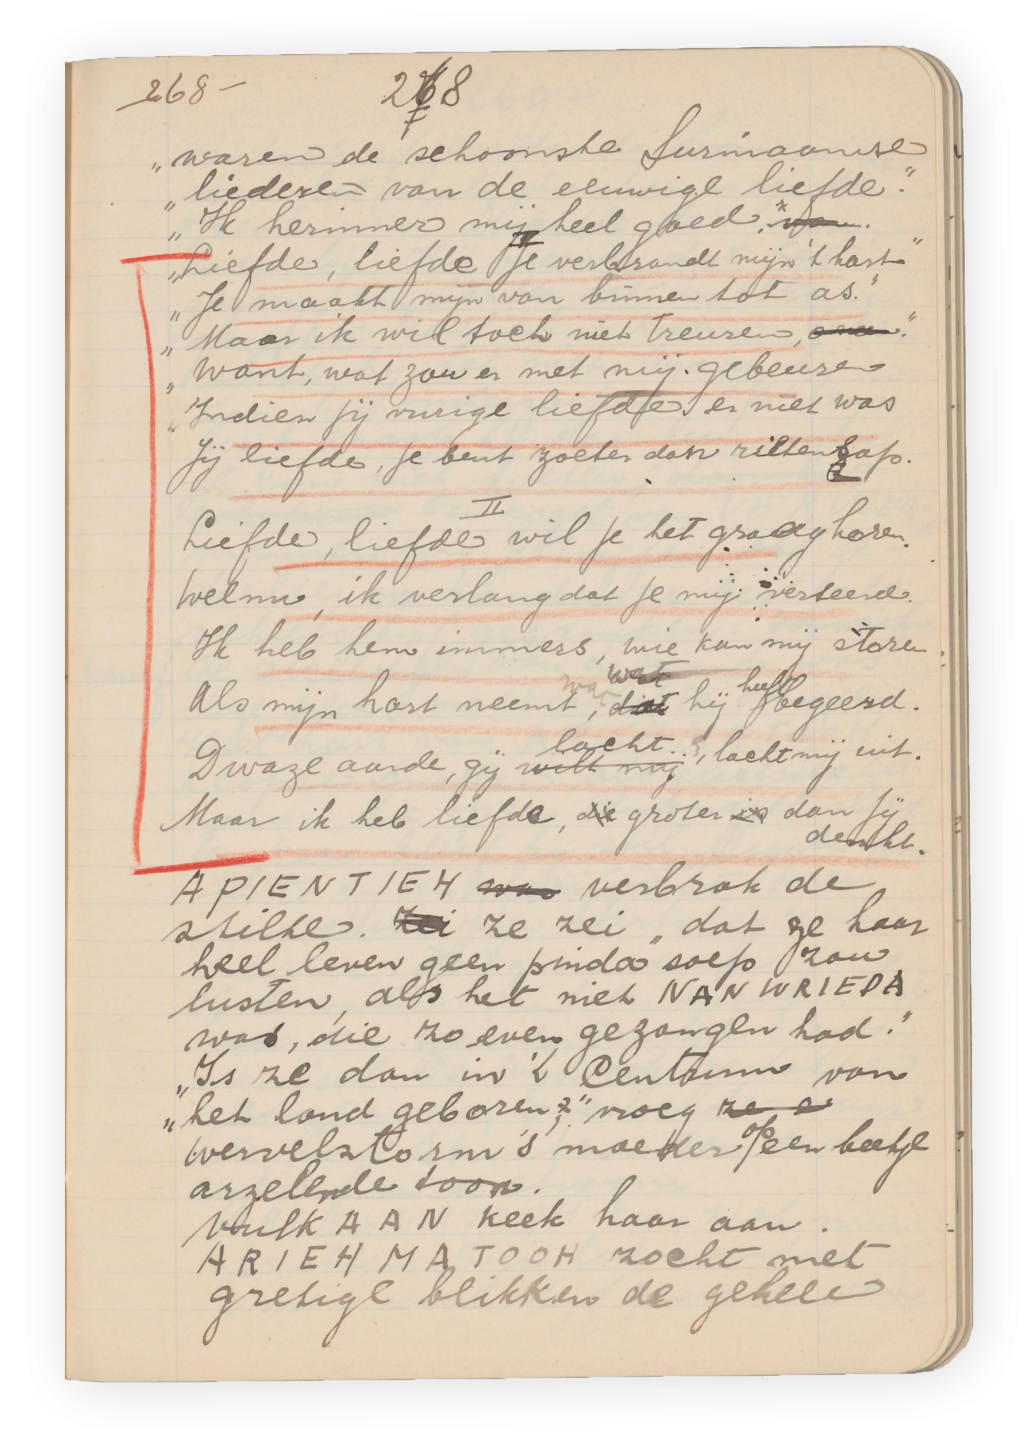 268- 268
„waren de schoonste Surinaamse
„liederen van de eeuwige liefde."
„Ik herinner mij heel goed."
„Liefde, liefde je verbrandt mijn 't hart"
„Je maakt mijn van binnen tot as."
„Maar ik wil toch niet treuren,"
„Want, wat zou er met mij gebeuren
„Indien jij vurige liefde er niet was
Jij liefde, je bent zoeter dan rietensap.
II
Liefde, liefde wil je het graag horen.
Welnu, ik verlang dat je mij verteerd.
Ik heb hem immers, wie kan mij storen
Als mijn hart neemt, wat hij heeft begeerd.
Dwaze aarde, gij lacht, lacht mij uit.
Maar ik heb liefde, groter dan jij
denkt.
APIENTIEH verbrak de
stilte. ze zei „dat ze haar
heel leven geen pinda soep zou
lusten, als het niet NANWRIEDA
was, die zo even gezongen had."
„Is ze dan in 't Centrum van
„het land geboren?" vroeg
wervelstorm's moeder op een beetje
arzelende toon.
VulkAAN keek haar aan.
ARIEHMATOOH zocht met
gretige blikken de gehele